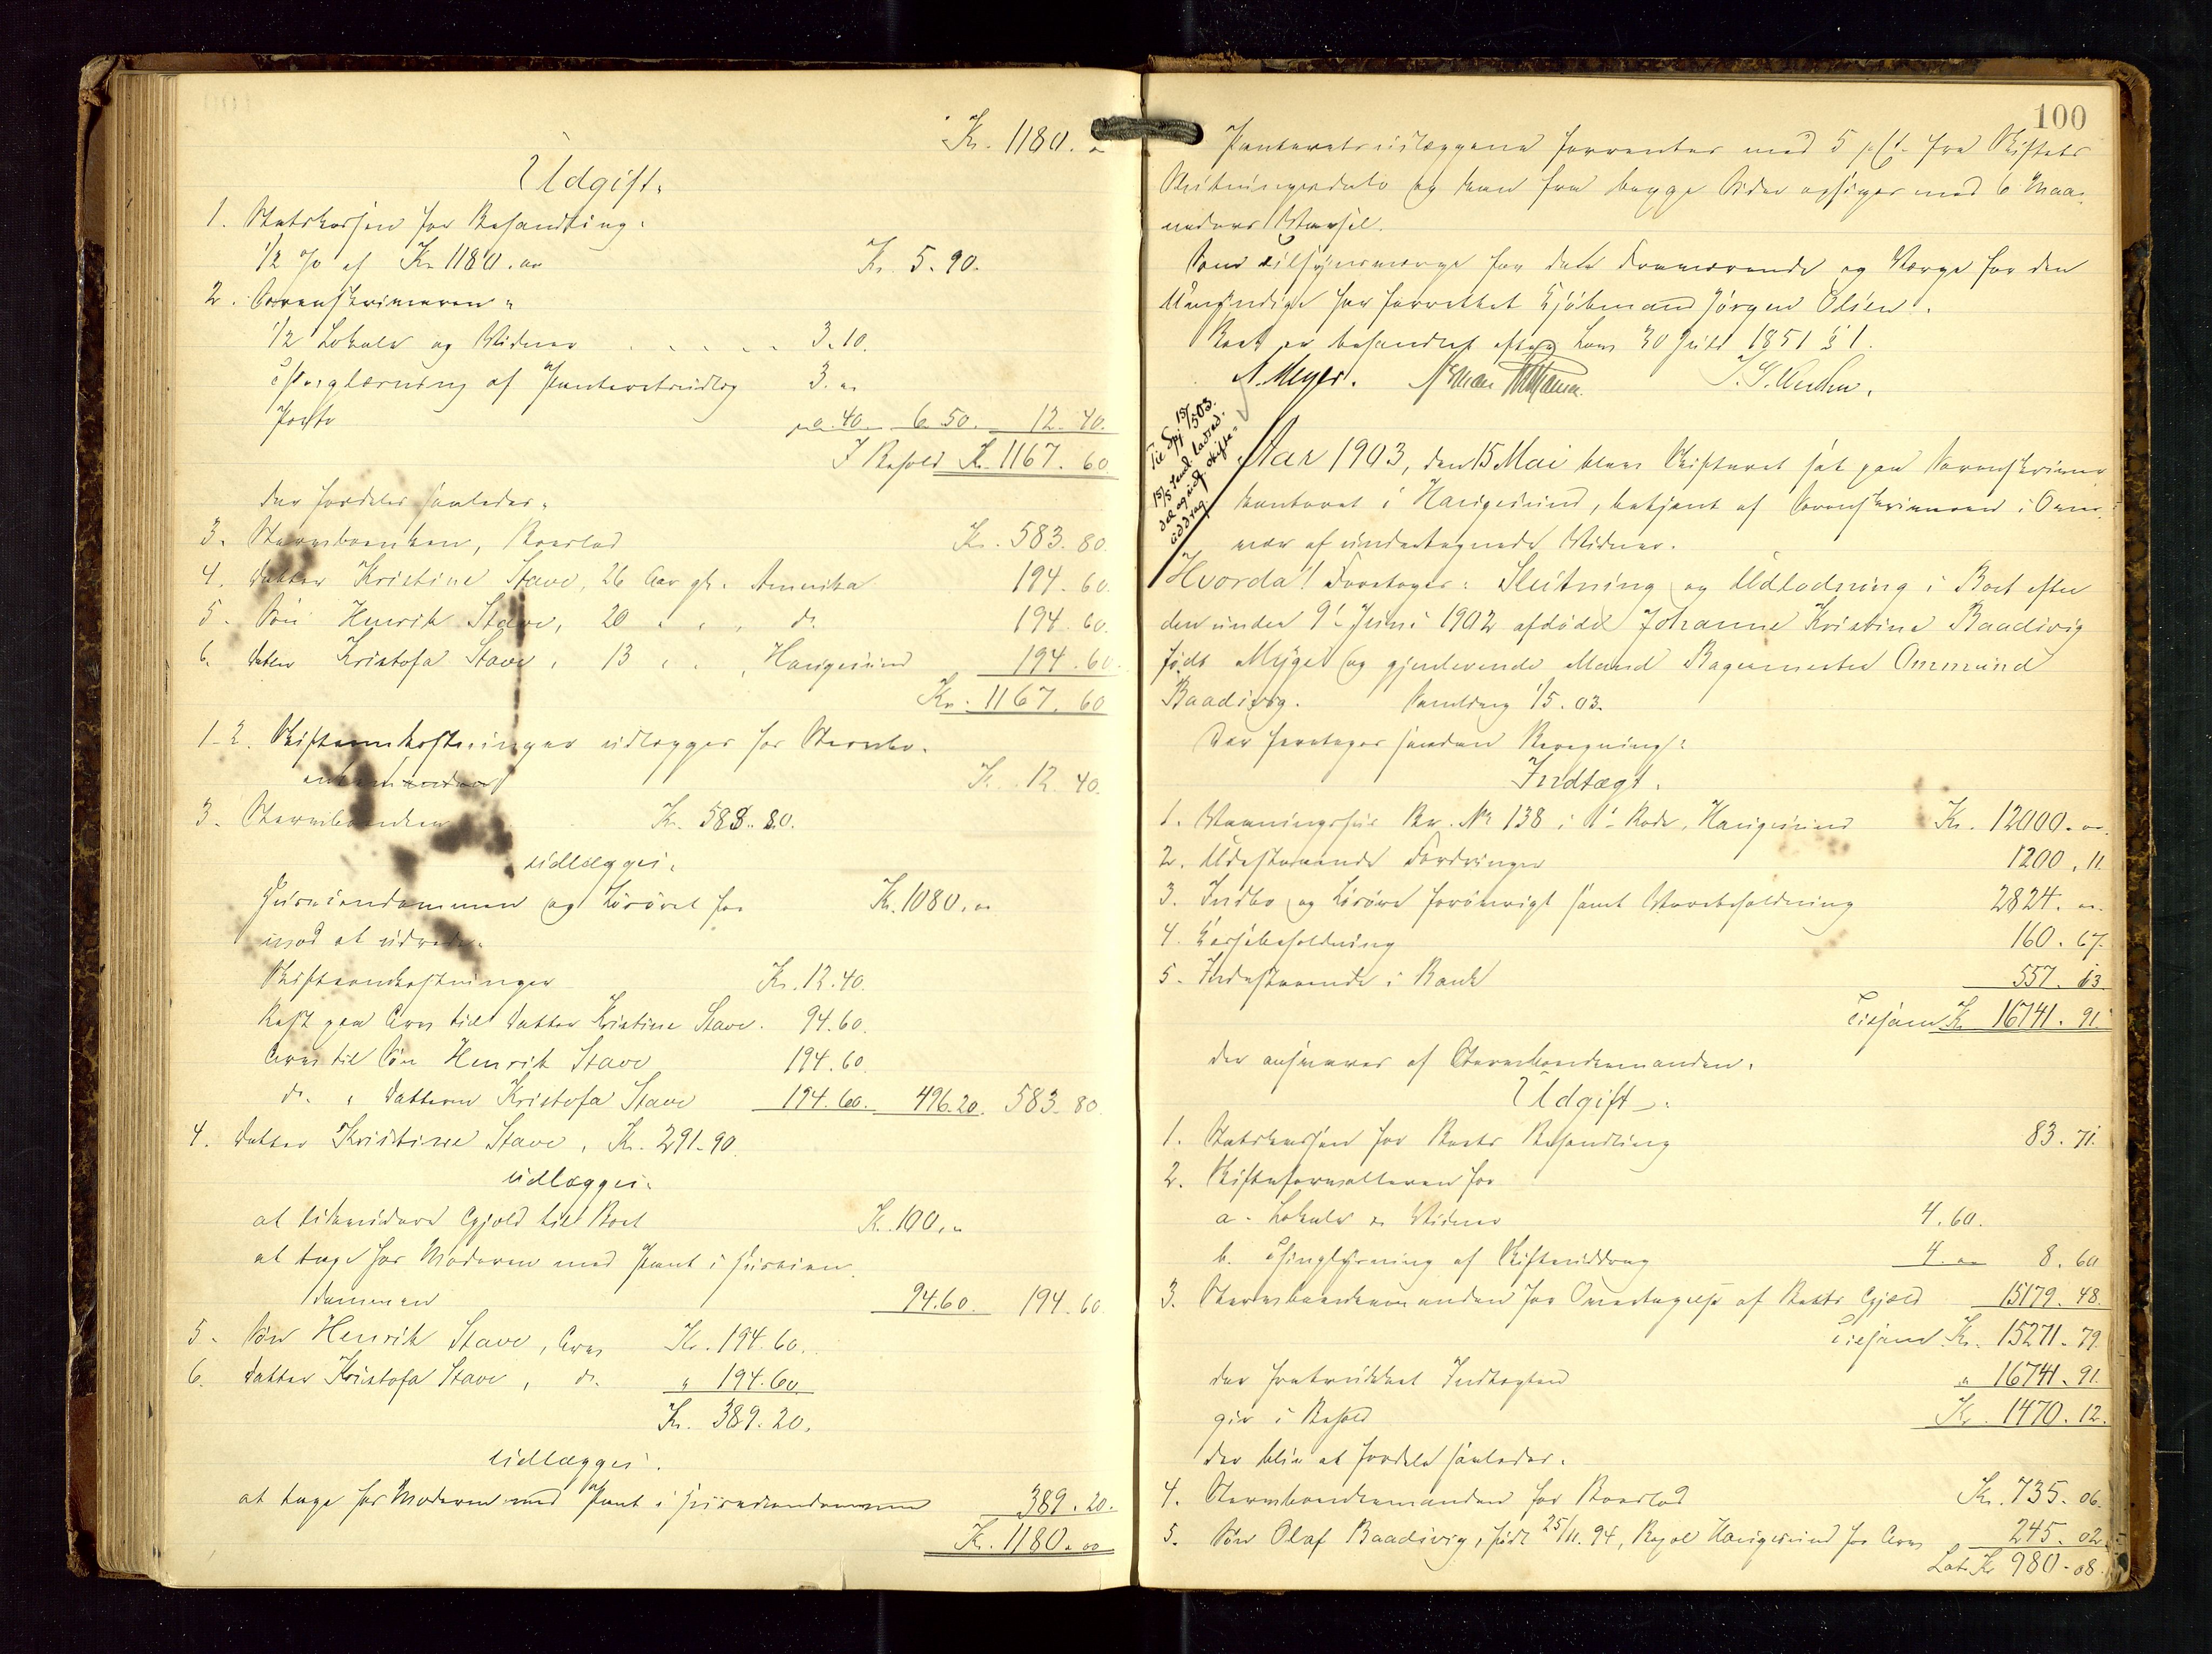 Kr. 1180. "
Udgift.
1. Statskassen for Behandling.
1/2 % af Kr 1180.00 Kr. 5.90.
2. Sorenskriveren.
1/2 Lokale og Vidner 3.10.
Thinglæsning af Panteretsudlæg 3. "
Porto 0.40. 6.50. 12.40.
I Behold Kr. 1167.60
der fordeles saaledes.
3. Stervboenken, Boeslod Kr. 583.80.
4. Datter Kristine Stave, 26 Aar gl. Amerika 194.60.
5. Søn Henrik Stave, 20 " " , do. 194.60.
6. Datter Kristofa Stave, 13 " " , Haugesund 194.60.
Kr. 1167.60
1-2. Skifteomkostninger udlægges hos Stervbo-
enken Kr. 12.40.
3. Stervboenken Kr. 583.80.
udlægges.
Huseiendommen og Løsøret for Kr. 1080. "
mod at udrede.
Skifteomkostninger Kr. 12.40.
Rest paa Arv til Datter Kristine Stave. 94.60.
Arv til Søn Henrik Stave 194.60.
do. " Datteren Kristofa Stave 194.60. 496.20. 583.80.
4. Datter Kristine Stave, Kr. 291.90.
udlægges.
at likvidere Gjæld til Boet Kr. 100. "
at tage hos Moderen med Pant i Huseien-
dommen 94.60. 194.60.
5. Søn Henrik Stave, Arv Kr. 194.60.
6. Datter Kristofa Stave, do. " 194.60
Kr. 389.20.
udlægges.
at tage hos Moderen med Pant i Huseiendommen 389.20.
Kr. 1180.00
100
Panteretsudlæggene forrentes med 5 p.Ct. fra Skiftets
Slutningsdato og kan fra begge Sider opsiges med 6 Maa-
neders Varsel.
Som Tilsynsværge for den Fraværende og Værge for den
Umyndige har forrettet Kjøbmand Jørgen Olsen.
Boet er behandlet efter Lov 30 Juli 1851 § 1.
A. Meyer.
Aar 1903, den 15 Mai blev Skifteret sat paa Sorenskriver-
kontoret i Haugesund, betjent af Sorenskriveren i Over-
vær af undertegnede Vidner.
Hvorda! Foretoges: Slutning og Udlodning i Boet efter
den under 9' Juni 1902 afdøde Johanne Kristine Baadsvig
født Myge og gjenlevende Mand Bagermester Ommund
Baadsvig. Samling 1/5.03.
Der foretoges saadan Beregning:
Indtægt.
1. Vaaningshus Br. No 138 i 1' Rode, Haugesund Kr. 12000. "
2. Udestaaende Fordringer 1200.11
3. Indbo og Løsøre forøvrigt samt Varebeholdning 2824. "
4. Kassebeholdning 160.67.
5. Indestaaende i Bank 557.13
Tilsam. Kr. 16741.91.
der ansvares af Stervboenkemanden.
Udgift.
1. Statskassen for Boets Behandling 83.71.
2. Skifteforvalteren for
a. Lokale & Vidner 4.60.
b. Thinglysning af Skifteuddrag 4. " 8.60
3. Stervboenkemanden for Overtagelse af Boets Gjæld 15179.48.
Tilsam. Kr. 15271.79.
der fratrukket Indtægten " 16741.91.
giv i Behold Kr. 1470.12.
der bliv at fordele saaledes.
4. Stervboenkemanden for Boeslod Kr. 735.06.
5. Søn Olaf Baadsvig, født 25/11.94, Bopæl Haugesund for Arv 245.02
Lat. Kr 980.08.